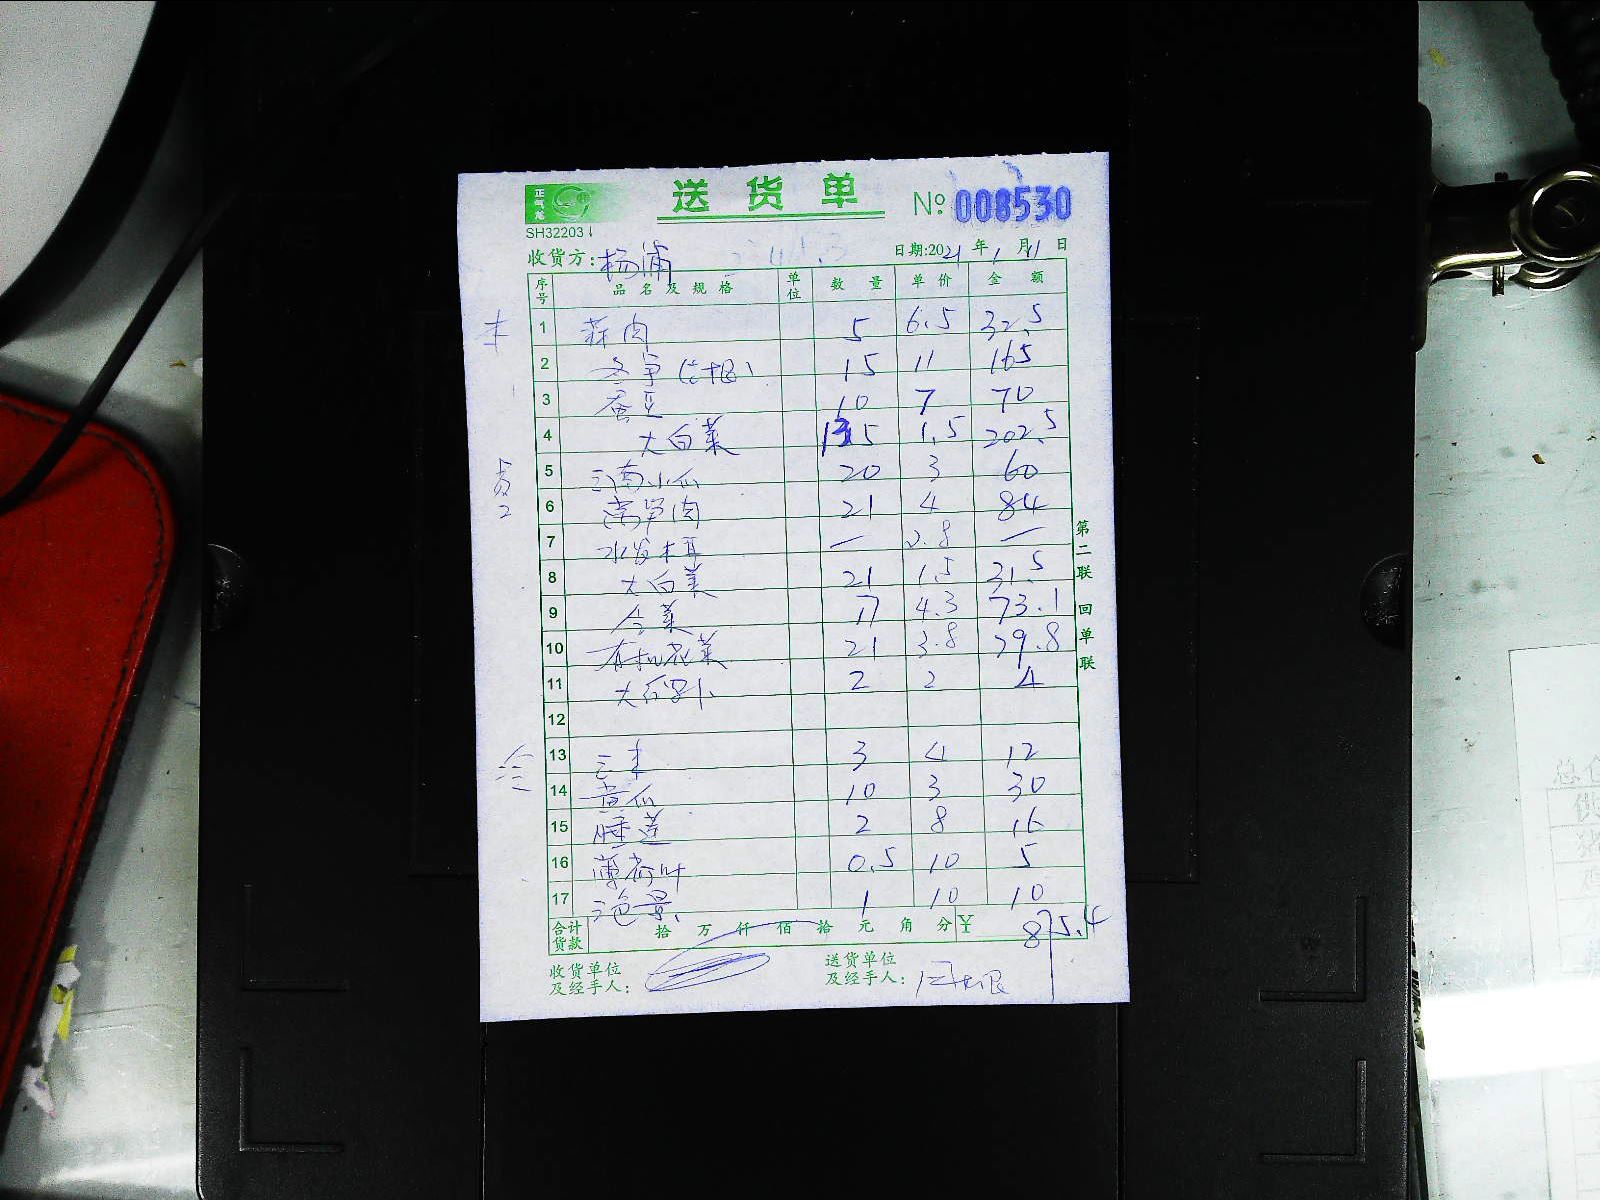 正气龙
送 货 单
№ 008530
SH32203
收货方: 杨浦 日期:2021 年 1 月 11 日
序号 品 名 及 规 格 单位 数 量 单 价 金 额
1 蒜肉 5 6.5 32.5
2 冬笋 15 11 165
3 蚕豆 10 7 70
4 大白菜 135 1.5 202.5
5 云南小瓜 20 3 60
6 莴笋肉 21 4 84
7 水发木耳 — 2.8 —
8 大白菜 21 1.5 31.5
9 今菜 17 4.3 73.1
10 有机花菜 21 3.8 79.8
11 大白罗卜 2 2 4
12
冷
13 3 4 12
14 黄瓜 10 3 30
15 睡莲 2 8 16
16 薄荷叶 0.5 10 5
17 三色堇 1 10 10
合计货款 拾 万 仟 佰 拾 元 角 分 ¥ 875.4
收货单位及经手人:
送货单位及经手人:
第二联 回单联